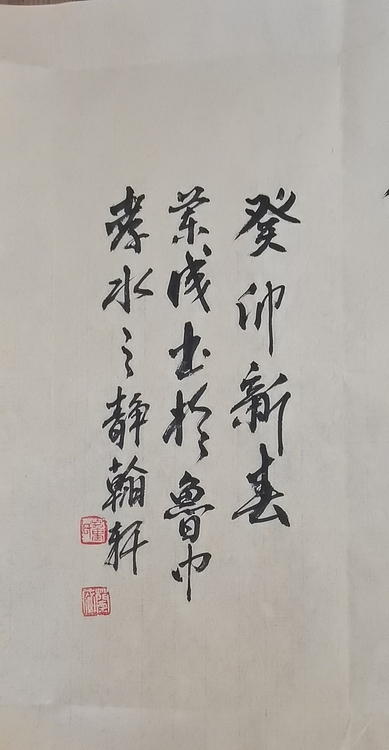 癸卯新春
業成书於魯中
孝水之静翰轩